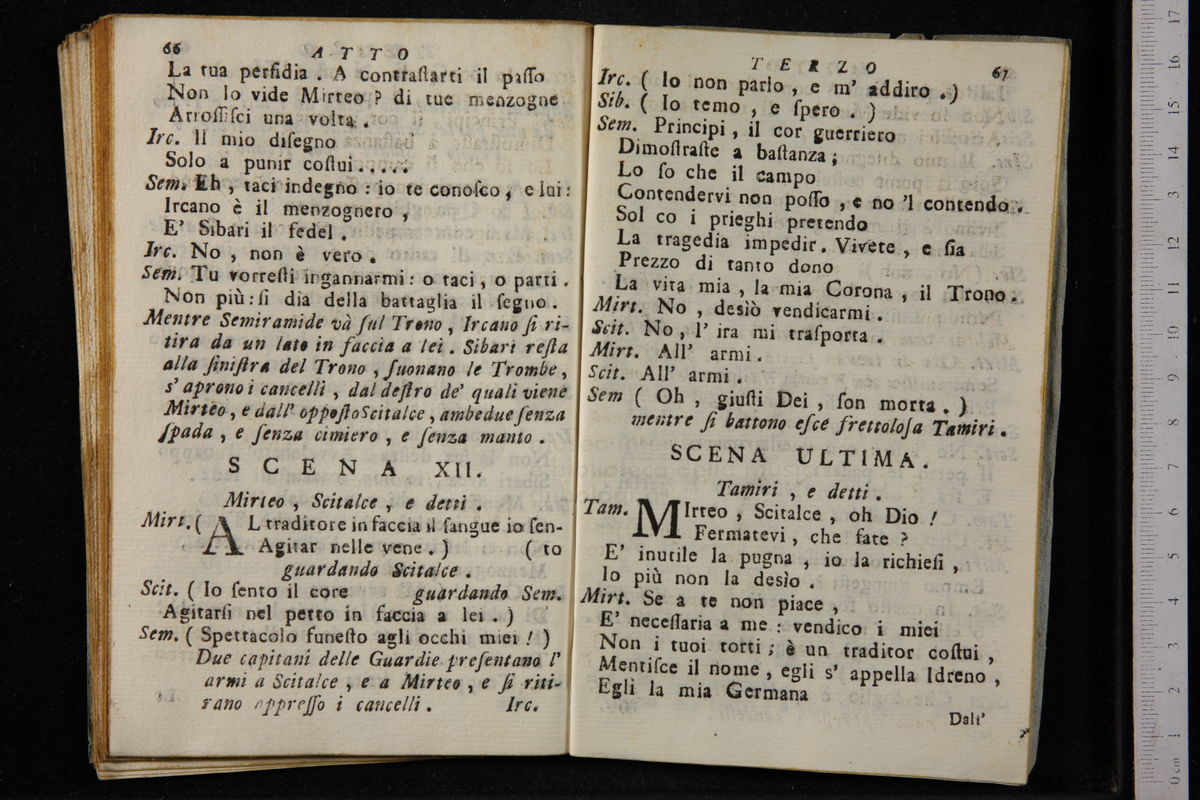 66 ATTO
La tua perfidia . A contraſtarti il paſſo
Non lo vide Mirteo ? di tue menzogne
Arroſſiſci una volta .
Irc. Il mio diſegno
Solo a punir coſtui . . . . .
Sem. Eh , taci indegno : io te conoſco , e lui :
Ircano è il menzognero ,
E' Sibari il fedel .
Irc. No , non è vero .
Sem. Tu vorreſti ingannarmi : o taci , o parti .
Non più : ſi dia della battaglia il ſegno .
Mentre Semiramide và ſul Trono , Ircano ſi ri-
tira da un lato in faccia a lei . Sibari reſta
alla ſiniſtra del Trono , ſuonano le Trombe ,
s' aprono i cancelli , dal deſtro de' quali viene
Mirteo , e dall' oppoſto Scitalce , ambedue ſenza
ſpada , e ſenza cimiero , e ſenza manto .
SCENA XII.
Mirteo , Scitalce , e detti .
Mirt. ( AL traditore in faccia il ſangue io ſen-
Agitar nelle vene . ) ( to
guardando Scitalce .
Scit. ( Io ſento il core guardando Sem.
Agitarſi nel petto in faccia a lei . )
Sem. ( Spettacolo funeſto agli occhi miei ! )
Due capitani delle Guardie preſentano l'
armi a Scitalce , e a Mirteo , e ſi riti-
rano appreſſo i cancelli . Irc.
TERZO 67
Irc. ( Io non parlo , e m' addiro . )
Sib. ( Io temo , e ſpero . )
Sem. Principi , il cor guerriero
Dimoſtraſte a baſtanza ;
Lo ſo che il campo
Contendervi non poſſo , e no 'l contendo .
Sol co i prieghi pretendo
La tragedia impedir . Vivete , e ſia
Prezzo di tanto dono
La vita mia , la mia Corona , il Trono .
Mirt. No , desìo vendicarmi .
Scit. No , l' ira mi traſporta .
Mirt. All' armi .
Scit. All' armi .
Sem ( Oh , giuſti Dei , ſon morta . )
mentre ſi battono eſce frettoloſa Tamiri .
SCENA ULTIMA .
Tamiri , e detti .
Tam. MIrteo , Scitalce , oh Dio !
Fermatevi , che fate ?
E' inutile la pugna , io la richieſi ,
Io più non la desìo .
Mirt. Se a te non piace ,
E' neceſſaria a me : vendico i miei
Non i tuoi torti ; è un traditor coſtui ,
Mentiſce il nome , egli s' appella Idreno ,
Egli la mia Germana
Dall'
0 cm 1 2 3 4 5 6 7 8 9 10 11 12 13 14 15 16 17